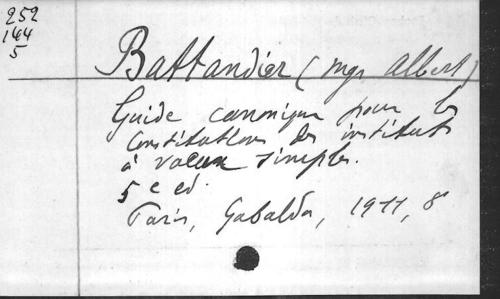 252
144
5
Battandier (mgr Albert)
Guide canonique pour les
Constitutions des instituts
à voeux simples.
5e ed.
Paris, Gabalda, 1911, 8°